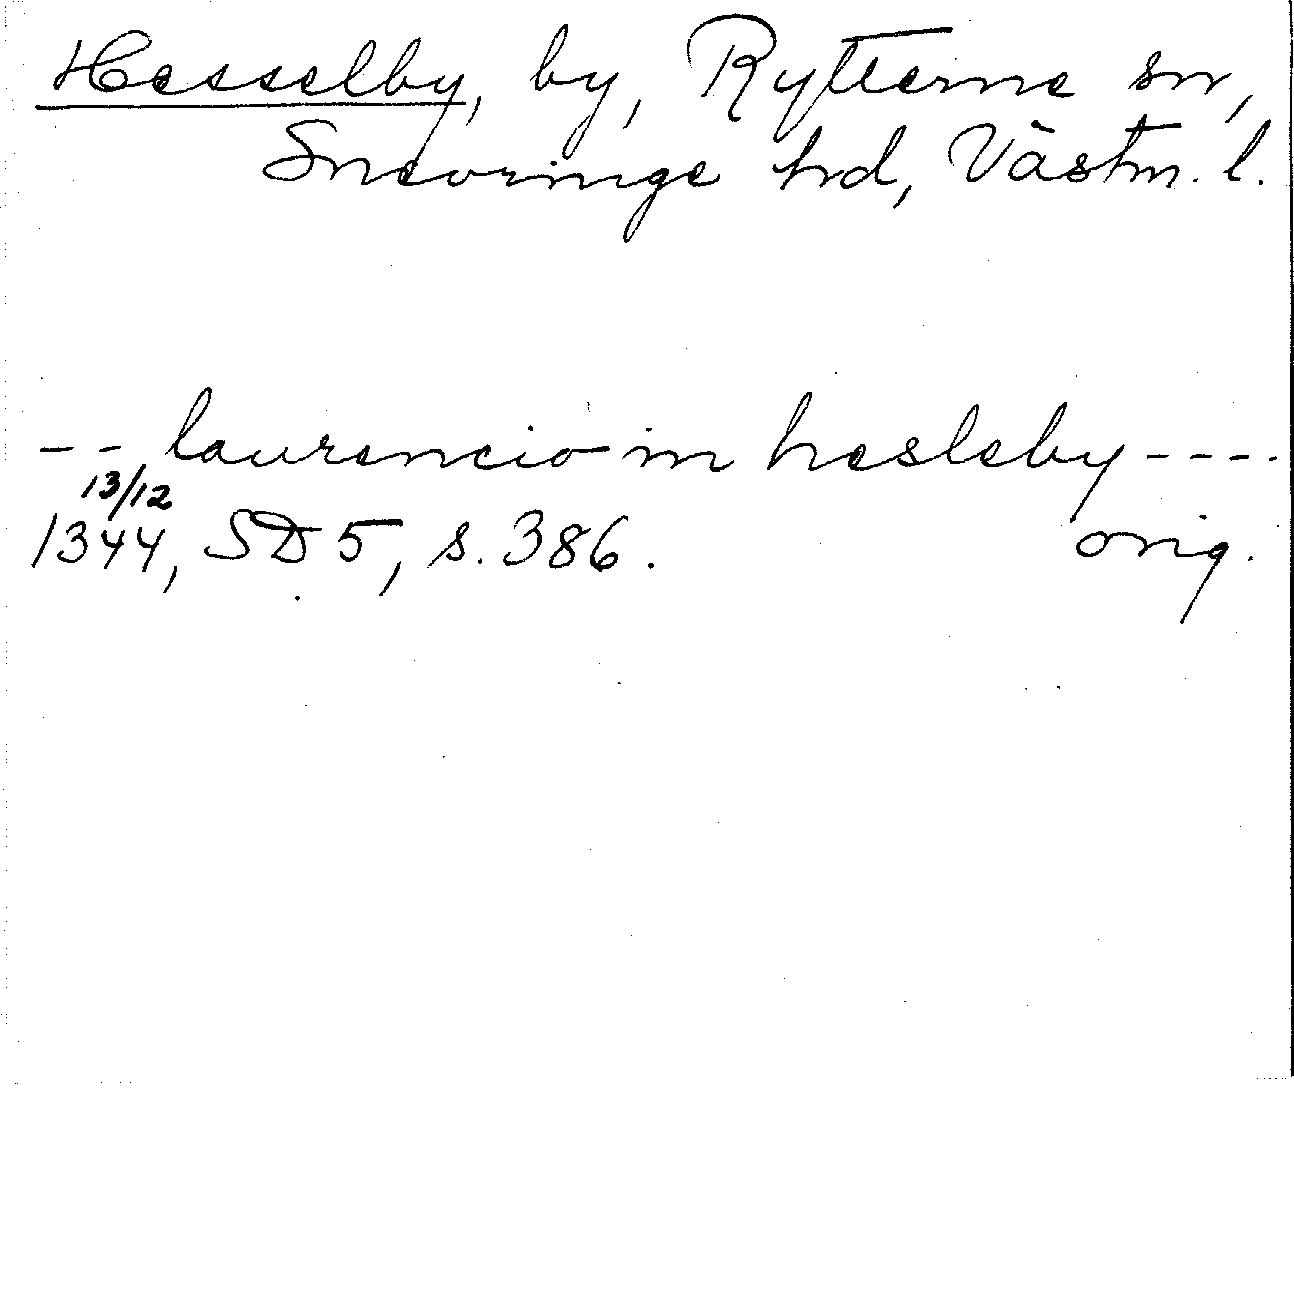 Hesselby, by, Rytterne sn,
Snevringe hd, Västm. l.
-- laurencio in hesleby ----
13/12
1344, SD 5, s. 386. orig.